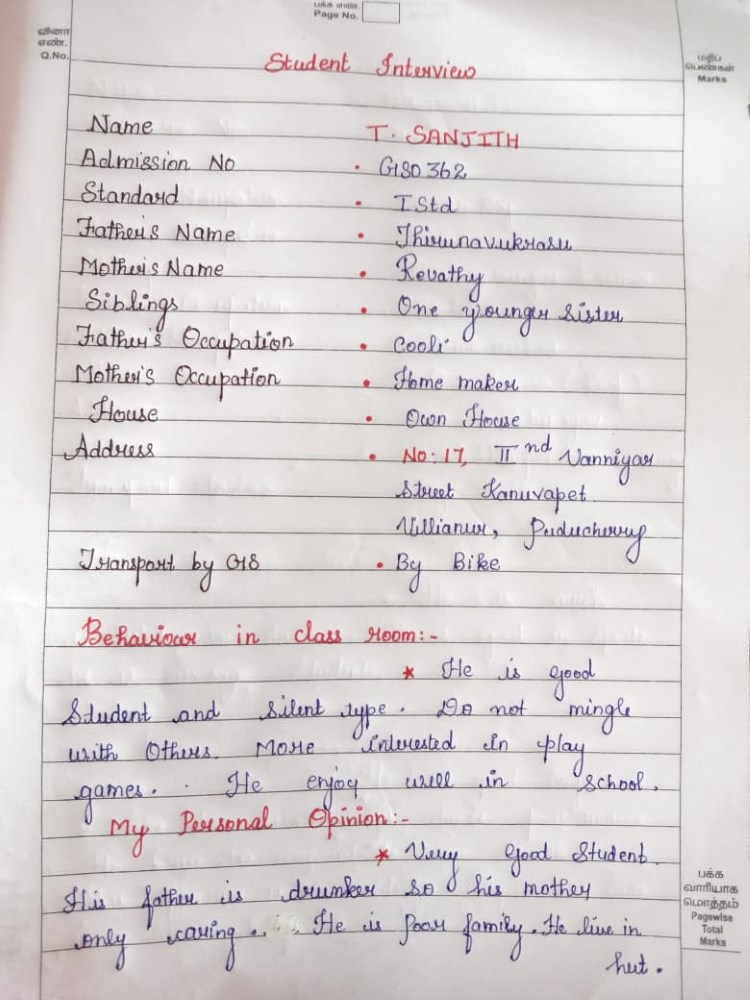 பக்க எண்.
Page No.
வினா
எண்.
Q.No.
மதிப்
பெண்கள்
Marks
Student Interview
Name T. SANJITH
Admission No . GISO 362
Standard . I Std
Father's Name . Thirunavukrasu
Mother's Name . Revathy
Siblings . One younger sister
Father's Occupation . Cooli
Mother's Occupation . Home maker
House . Own House
Address . No: 17, II nd Vanniyar
Street Kanuvapet
Villianur, Puducherry
Transport by GIS . By Bike
Behaviour in class room:-
* He is good
Student and Silent type. Do not mingle
with Others. More interested in play
games. He enjoy well in School.
My Personal Opinion:-
* Very good Student.
His father is drunker so his mother
only caring. He is Poor family. He live in
hut.
பக்க
வாரியாக
மொத்தம்
Pagewise
Total
Marks